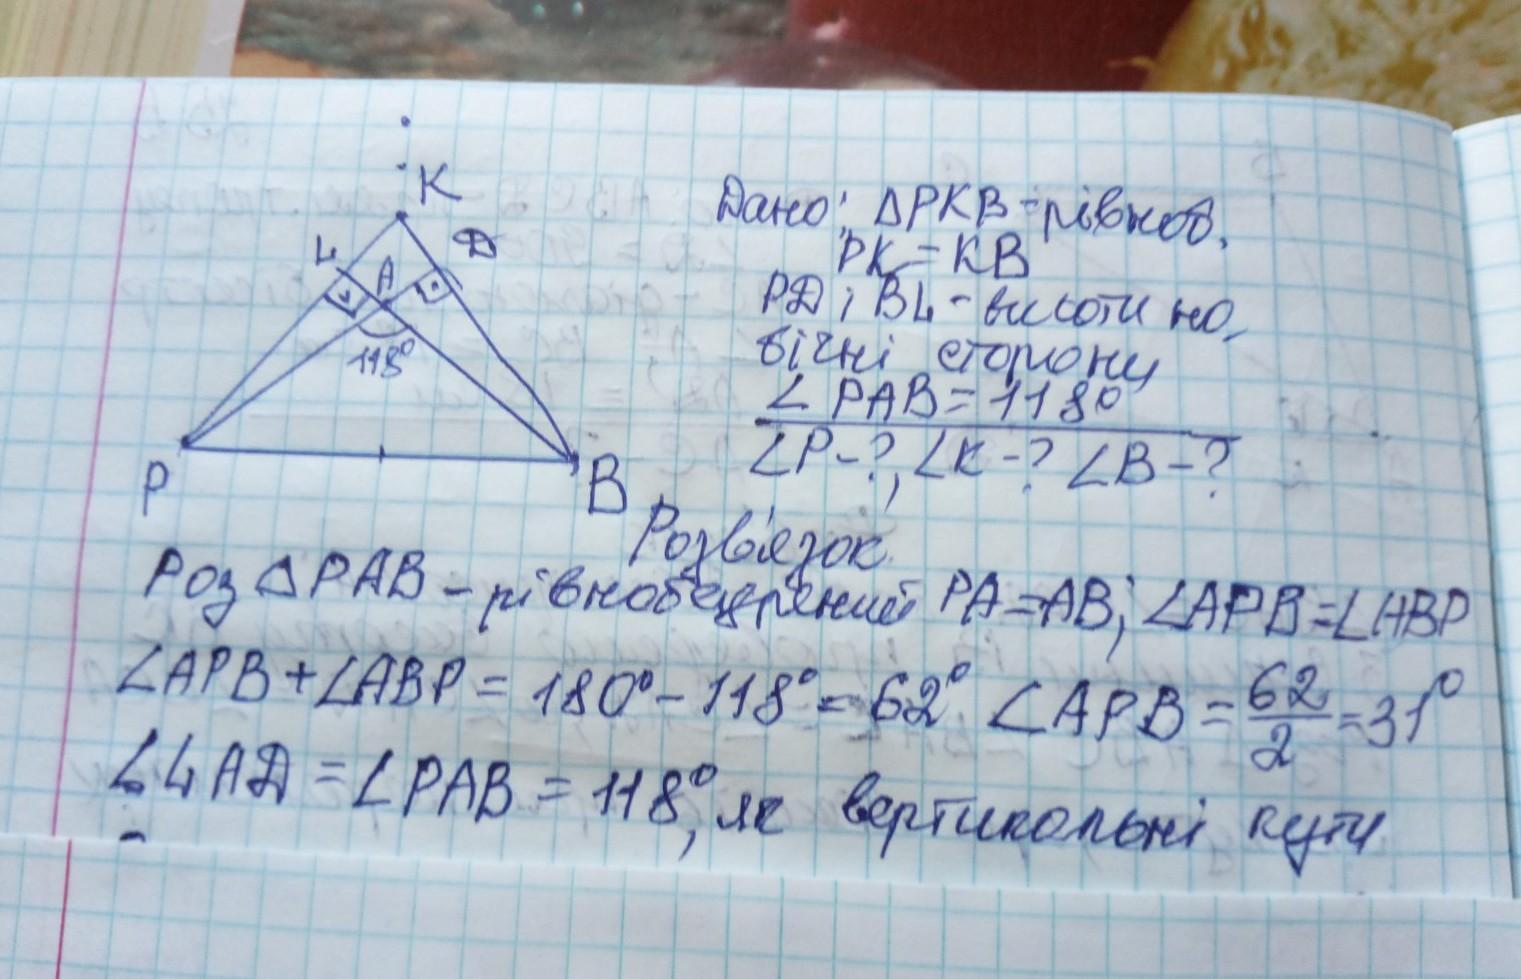 K
L
A
D
118°
P
B
Дано: △PKB - рівноб.
PK = KB
PD і BL - висоти на
бічні сторони
∠PAB = 118°
∠P-?, ∠K-? ∠B-?
Розв'язок
Роз △PAB - рівнобедрений PA=AB; ∠APB=∠ABP
∠APB + ∠ABP = 180° - 118° = 62° ∠APB = 62/2 = 31°
∠LAD = ∠PAB = 118°, як вертикальні кути